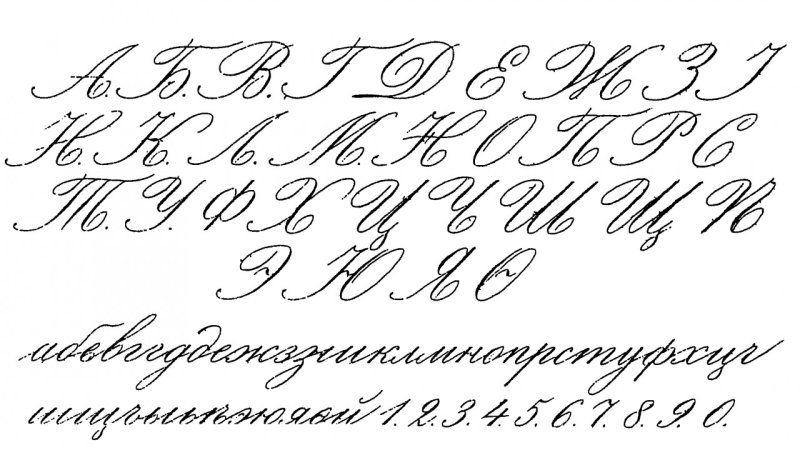 А. Б. В. Г Д Е Ж З І
И. К. Л. М. Н О П Р С
Т. У. Ф Х Ц Ч Ш Щ Ѣ
Э Ю Я Ѳ
абввггддежззиіклмнопрстуфхцч
шщъыьѣэюяѳй 1. 2. 3. 4. 5. 6. 7. 8. 9. 0.